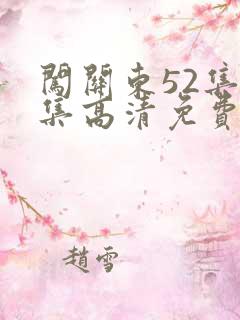 闖關東52集
集高清免費
趙雪